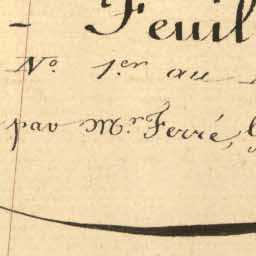 - Feuil
No. 1.er au
par Mr. Ferré,